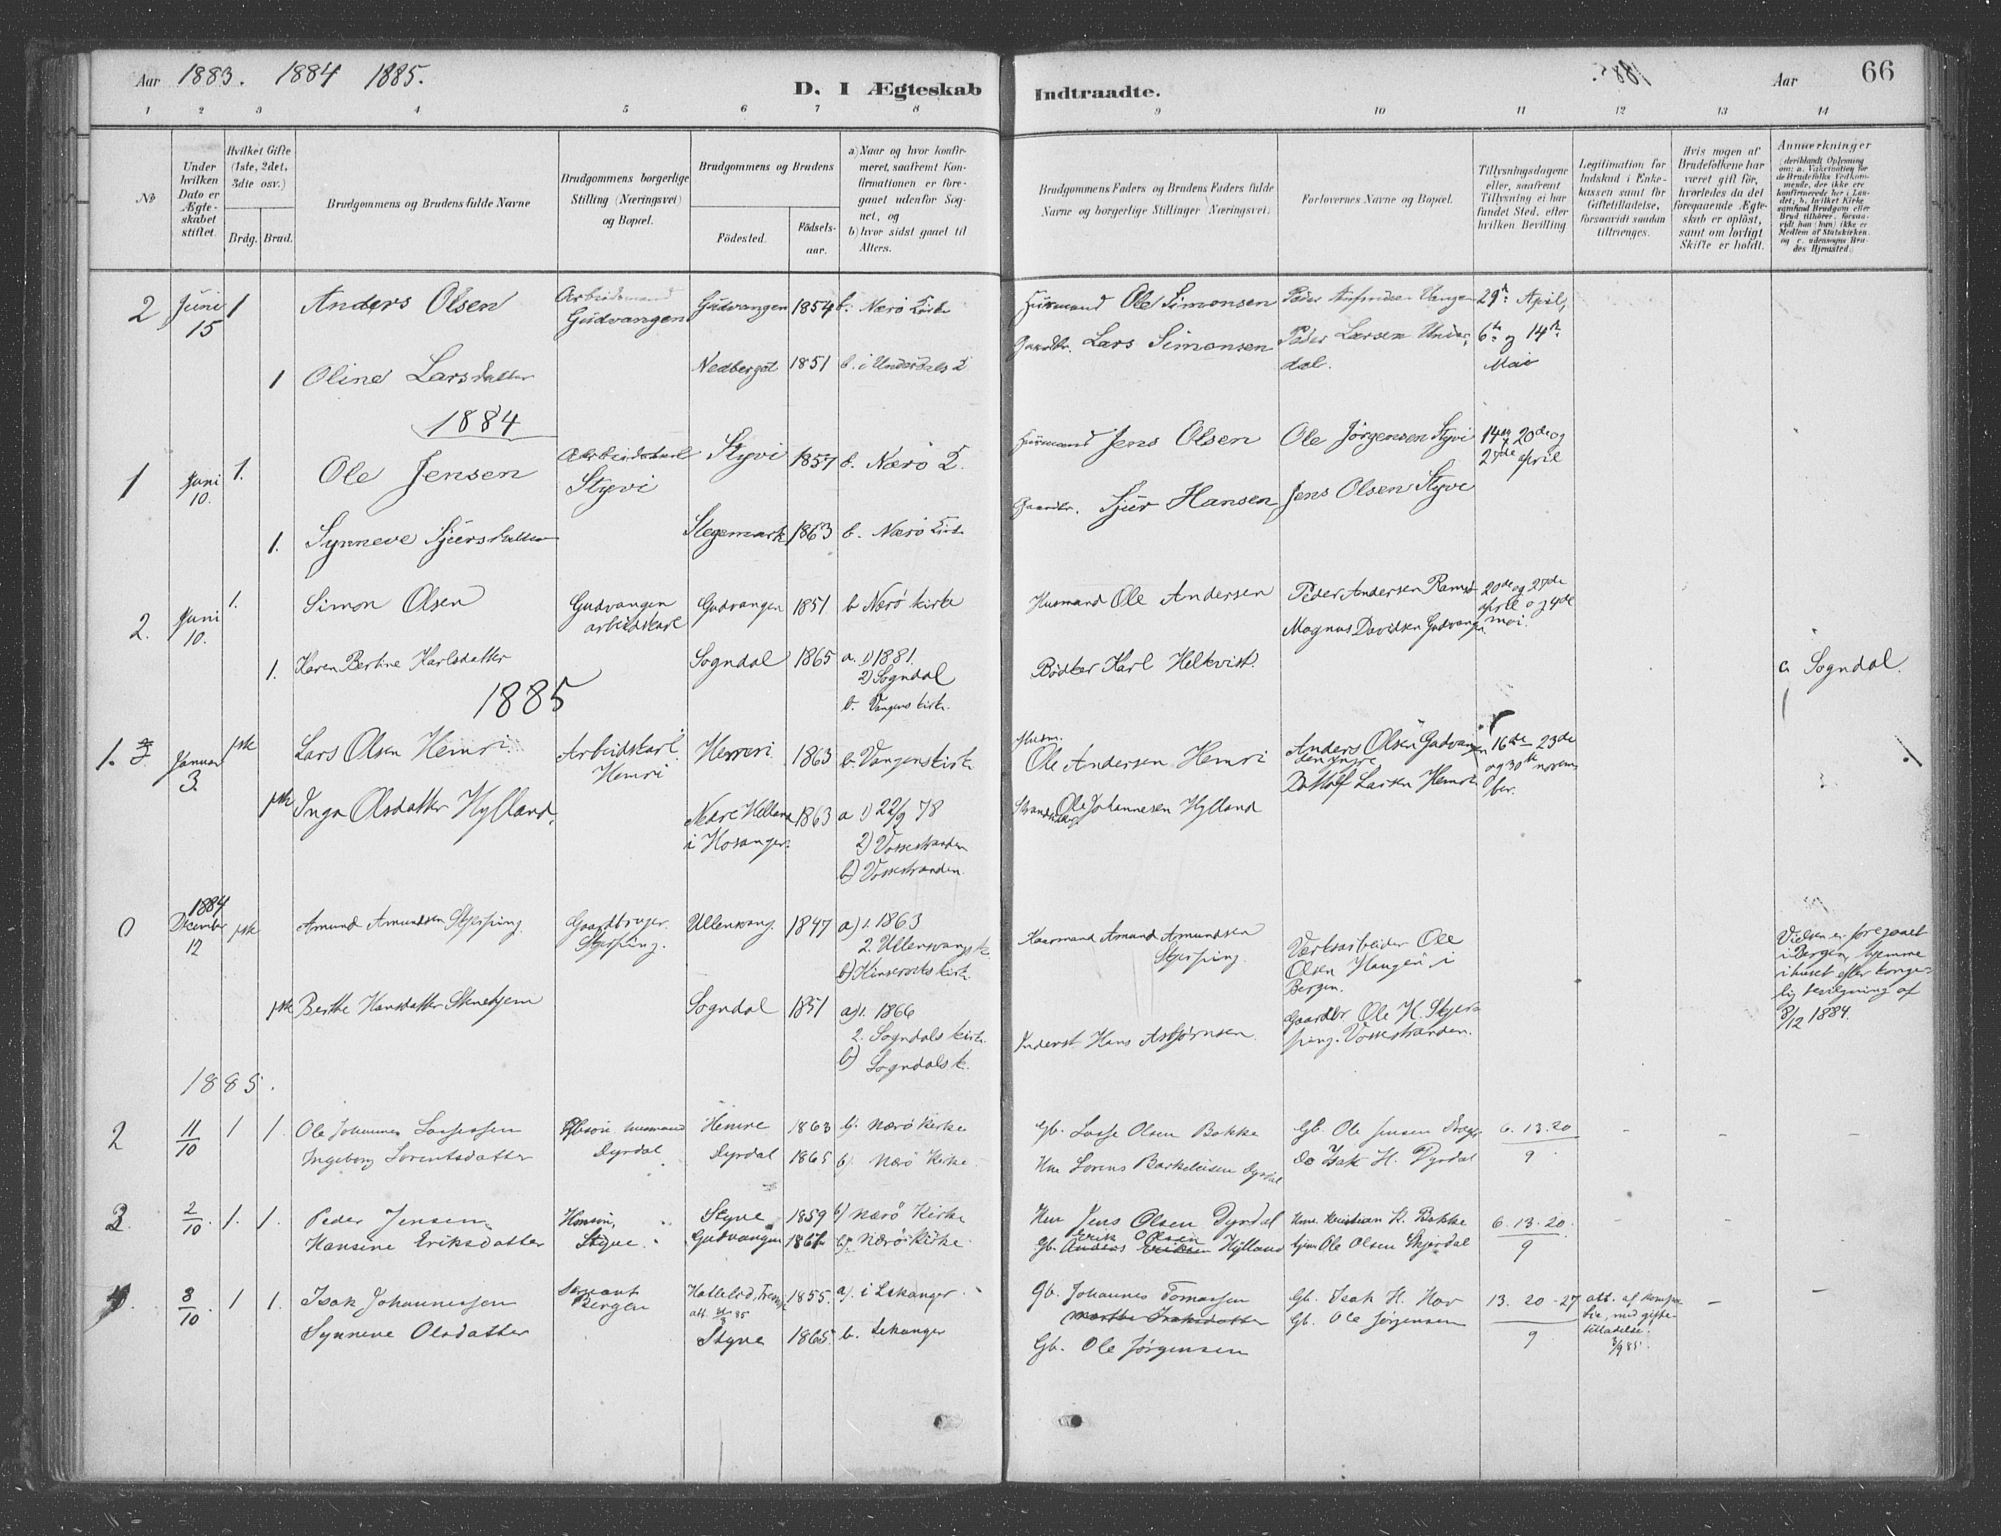 Aar 1883. 1884 1885.
D. I Ægteskab Indtraadte.
1885.
Aar
66
1 2 3 4 5 6 7 8 9 10 11 12 13 14
No
Under hvilken Dato er Ægteskabet stiftet.
Hvilket Gifte (1ste, 2det, 3die osv.)
Brdg. Brud.
Brudgommens og Brudens fulde Navne
Brudgommens borgerlige Stilling (Næringsvei) og Bopæl.
Brudgommens og Brudens
Fødested. Fødselsaar.
a) Naar og hvor konfirmeret, saafremt Konfirmationen er foregaaet udenfor Sognet, og
b) hvor sidst gaaet til Alters.
Brudgommens Faders og Brudens Faders fulde Navne og borgerlige Stillinger (Næringsvei)
Forlovernes Navne og Bopæl.
Tillysningsdagene eller, saafremt Tillysning ei har fundet Sted, efter hvilken Bevilling
Legitimation for Indskud i Enkekassen samt for Giftetilladelse, forsaavidt saadan tiltrænges.
Hvis nogen af Brudefolkene har været gift før, hvorledes da det foregaaende Ægteskab er opløst, samt om lovligt Skifte er holdt.
Anmærkninger
2 Juni 15 1 Anders Olsen Arbeidsmand Gudvangen Gudvangen 1854 b. Nærø Kirke Husmand Ole Simonsen Peder Vangen 29de April,
1 Oline Larsdatter 1851 b. i Underdals K. Gaardbr. Lars Simonsen Peder Larsen Underdal. 6te og 14de Mai
1884
1 Juni 10. 1. Ole Jensen Arbeidskarl Styvi Styvi 1857 b. Nærø K. Husmand Jens Olsen Ole Jørgensen Styvi 14de, 20de og 27de April
1. Synneve Sjursdatter Stegemark 1863 b. Nærø Kirke Gaardbr. Sjur Hansen Jens Olsen Styve
2. Juni 10. 1. Simon Olsen Gudvangen arbeidskarl Gudvangen 1851 b Nærø kirke Husmand Ole Andersen Peder Andersen 20de og 27de april og 4de mai.
Magnus Davidsen Gudvangen
1. Karen Bertine Karlsdatter Sogndal 1865 a. 1) 1881. 2) Sogndal b. Vangens kirke. Bødker Karl Helkvist. c. Sogndal.
1885
1. Januar 3. 1ste Lars Olsen Hemri Arbeidskarl Hemri Hemri 1863 b. Vangens kirke Husm. Ole Andersen Hemri Anders Olsen Gudvangen den Yngre 16de 23de og 30te november.
Larsen Hemri
1ste Inga Olsdatter Hylland. Nedre Helland i Hosanger. 1863 a 1) 22/9 78 2) Vossestranden b) Vossestranden. Ole Johannesen Hylland
0 1884 December 12 1ste Amund Amundsen Skjerping. Gaardbruger Skjerping. Ullensvang. 1847 a) 1. 1863 2. Ullensvangs k. b) Kinserviks kirke. Kaarmand Amund Amundsen Skjerping. Værksarbeider Ole Olsen Haugen i Bergen. Vielsen er foregaaet i Bergen, hjemme i huset efter kongelig bevilgning af 8/12 1884.
1ste Berthe Hansdatter Stenehjem Sogndal 1851 a) 1. 1866 2. Sogndals kirke. b) Sogndals k. Inderst Hans Asbjørnsen. Gaardbr Ole H. Skjerping. Vossestranden.
1885.
2 11/10 1 1. Ole Johannes Lassessen husmand Dyrdal Hemre 1863 b). Nærø Kirke Gb. Lasse Olsen Bakke Gb. Ole Jensen 6. 13. 20 / 9 - - -
Ingeborg Lorentsdatter Dyrdal 1865 b). Nærø Kirke. Hm Lorens Dyrdal do Isak H. Dyrdal
3. 2/10. 1. 1. Peder Jensen Styve Styve 1859 b) Nærø Kirke Hm Jens Olsen Dyrdal Hm. Kristian H. Bakke 6. 13. 20. / 9 - - -
Hansine Eriksdatter Gudvangen b). Nærø Kirke. Gb. Erik Olsen Hylland Ole Olsen Skjerdal
4. 3/10 1 1. Isak Johannessen Bergen 1855. a). i Lekanger. Gb. Johannes Tomassen Gb. Isak H. 13. 20 - 27 / 9 att. af med giftetilladelse. 3/9 85. - -
Synneve Olsdatter Styve 1865. b. Lekanger Gb. Ole Jørgensen Gb. Ole Jørgensen